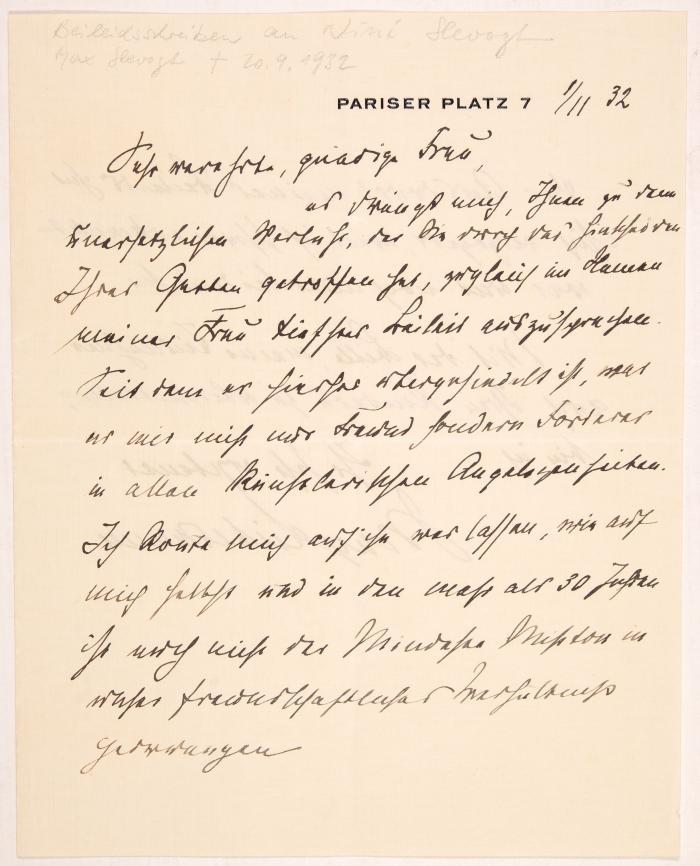 Beileidsschreiben an Nini Slevogt
Max Slevogt † 20.9.1932
PARISER PLATZ 7 1/11 32
Sehr verehrte, gnädige Frau,
es drängt mich, Ihnen zu dem
unersetzlichen Verluste, der Sie durch das Hinscheiden
Ihres Gatten getroffen hat, zugleich im Namen
meiner Frau tiefstes Beileid auszusprechen.
Seit dem er hierher übergesiedelt ist, war
er mir nicht nur Freund sondern Förderer
in allen künstlerischen Angelegenheiten.
Ich konte mich auf ihn verlassen, wie auf
mich selbst und in den mehr als 30 Jahren
ist auch nicht der Mindeste Misston in
unser freundschaftliches Verhältniss
gedrungen